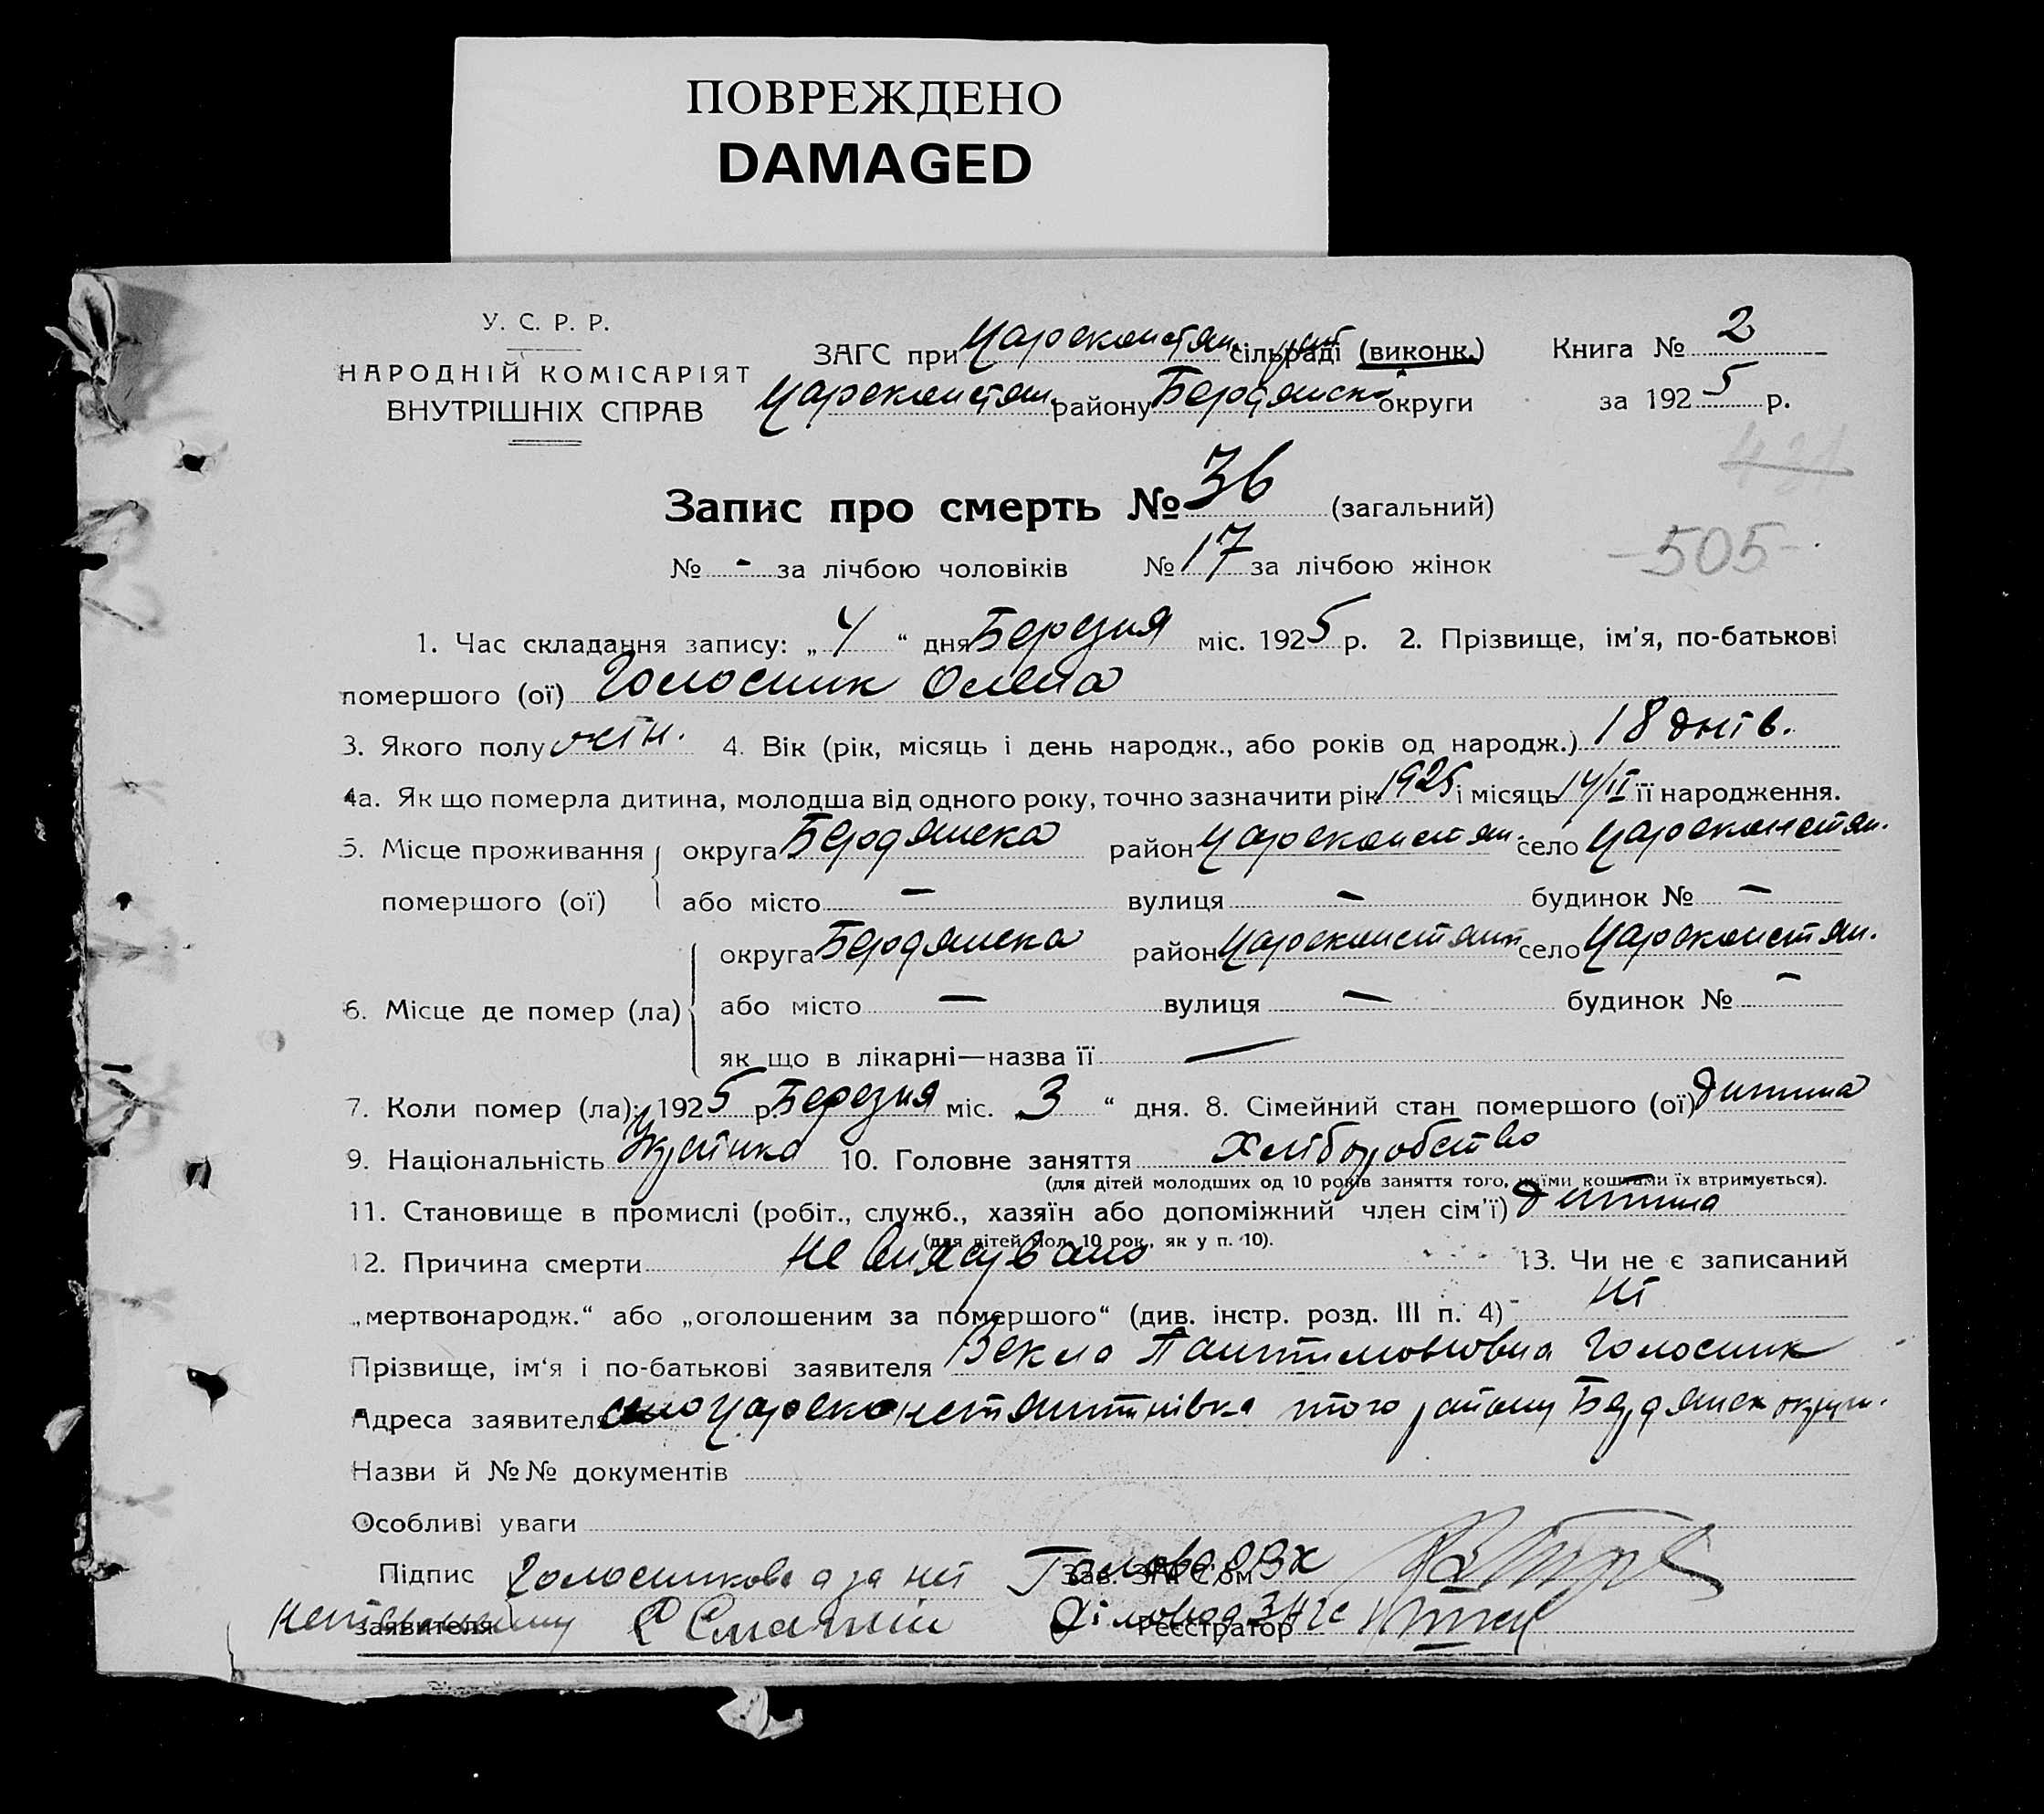 ПОВРЕЖДЕНО
DAMAGED
У. С. Р. Р.
НАРОДНІЙ КОМІСАРІЯТ
ВНУТРІШНІХ СПРАВ
ЗАГС при Цареконстян. сільраді (виконк.)
Цареконстян. району Бердянсько округи
Книга № 2
за 1925 р.
431
Запис про смерть № 36 (загальний)
№ - за лічбою чоловіків № 17 за лічбою жінок
-505-
1. Час складання запису: „ 4 “ дня Березня міс. 1925 р. 2. Прізвище, ім’я, по-батькові
помершого (ої) Голосник Олена
3. Якого полу жін. 4. Вік (рік, місяць і день народж., або років од народж.) 18 днів.
4а. Як що померла дитина, молодша від одного року, точно зазначити рік 1925 і місяць 14/II її народження.
5. Місце проживання помершого (ої) округа Бердянска район Цареконстян. село Цареконстян.
або місто — вулиця — будинок № —
6. Місце де помер (ла) округа Бердянска район Цареконстянт село Цареконстян.
або місто — вулиця — будинок № —
як що в лікарні—назва її —
7. Коли помер (ла): 1925 р. Березня міс. 3 “ дня. 8. Сімейний стан помершого (ої) Дитина
9. Національність Украінка 10. Головне заняття Хліборобство
(для дітей молодших од 10 років заняття того, чиїми коштами їх втримується).
11. Становище в промислі (робіт., служб., хазяїн або допоміжний член сім’ї) Дитина
(для дітей мол. 10 рок., як у п. 10).
12. Причина смерти не виясувано 13. Чи не є записаний
„мертвонародж.“ або „оголошеним за помершого“ (див. інстр. розд. III п. 4) ні
Прізвище, ім‘я і по-батькові заявителя Векла Голосник
Адреса заявителя село Цареконстянтинівка того району Бердянск округи.
Назви й №№ документів
Особливі уваги
Підпис заявителя Голосникова а за неї
Зав. ЗАГС‘ом Голова РВК
Реєстратор Діловод ЗАГС